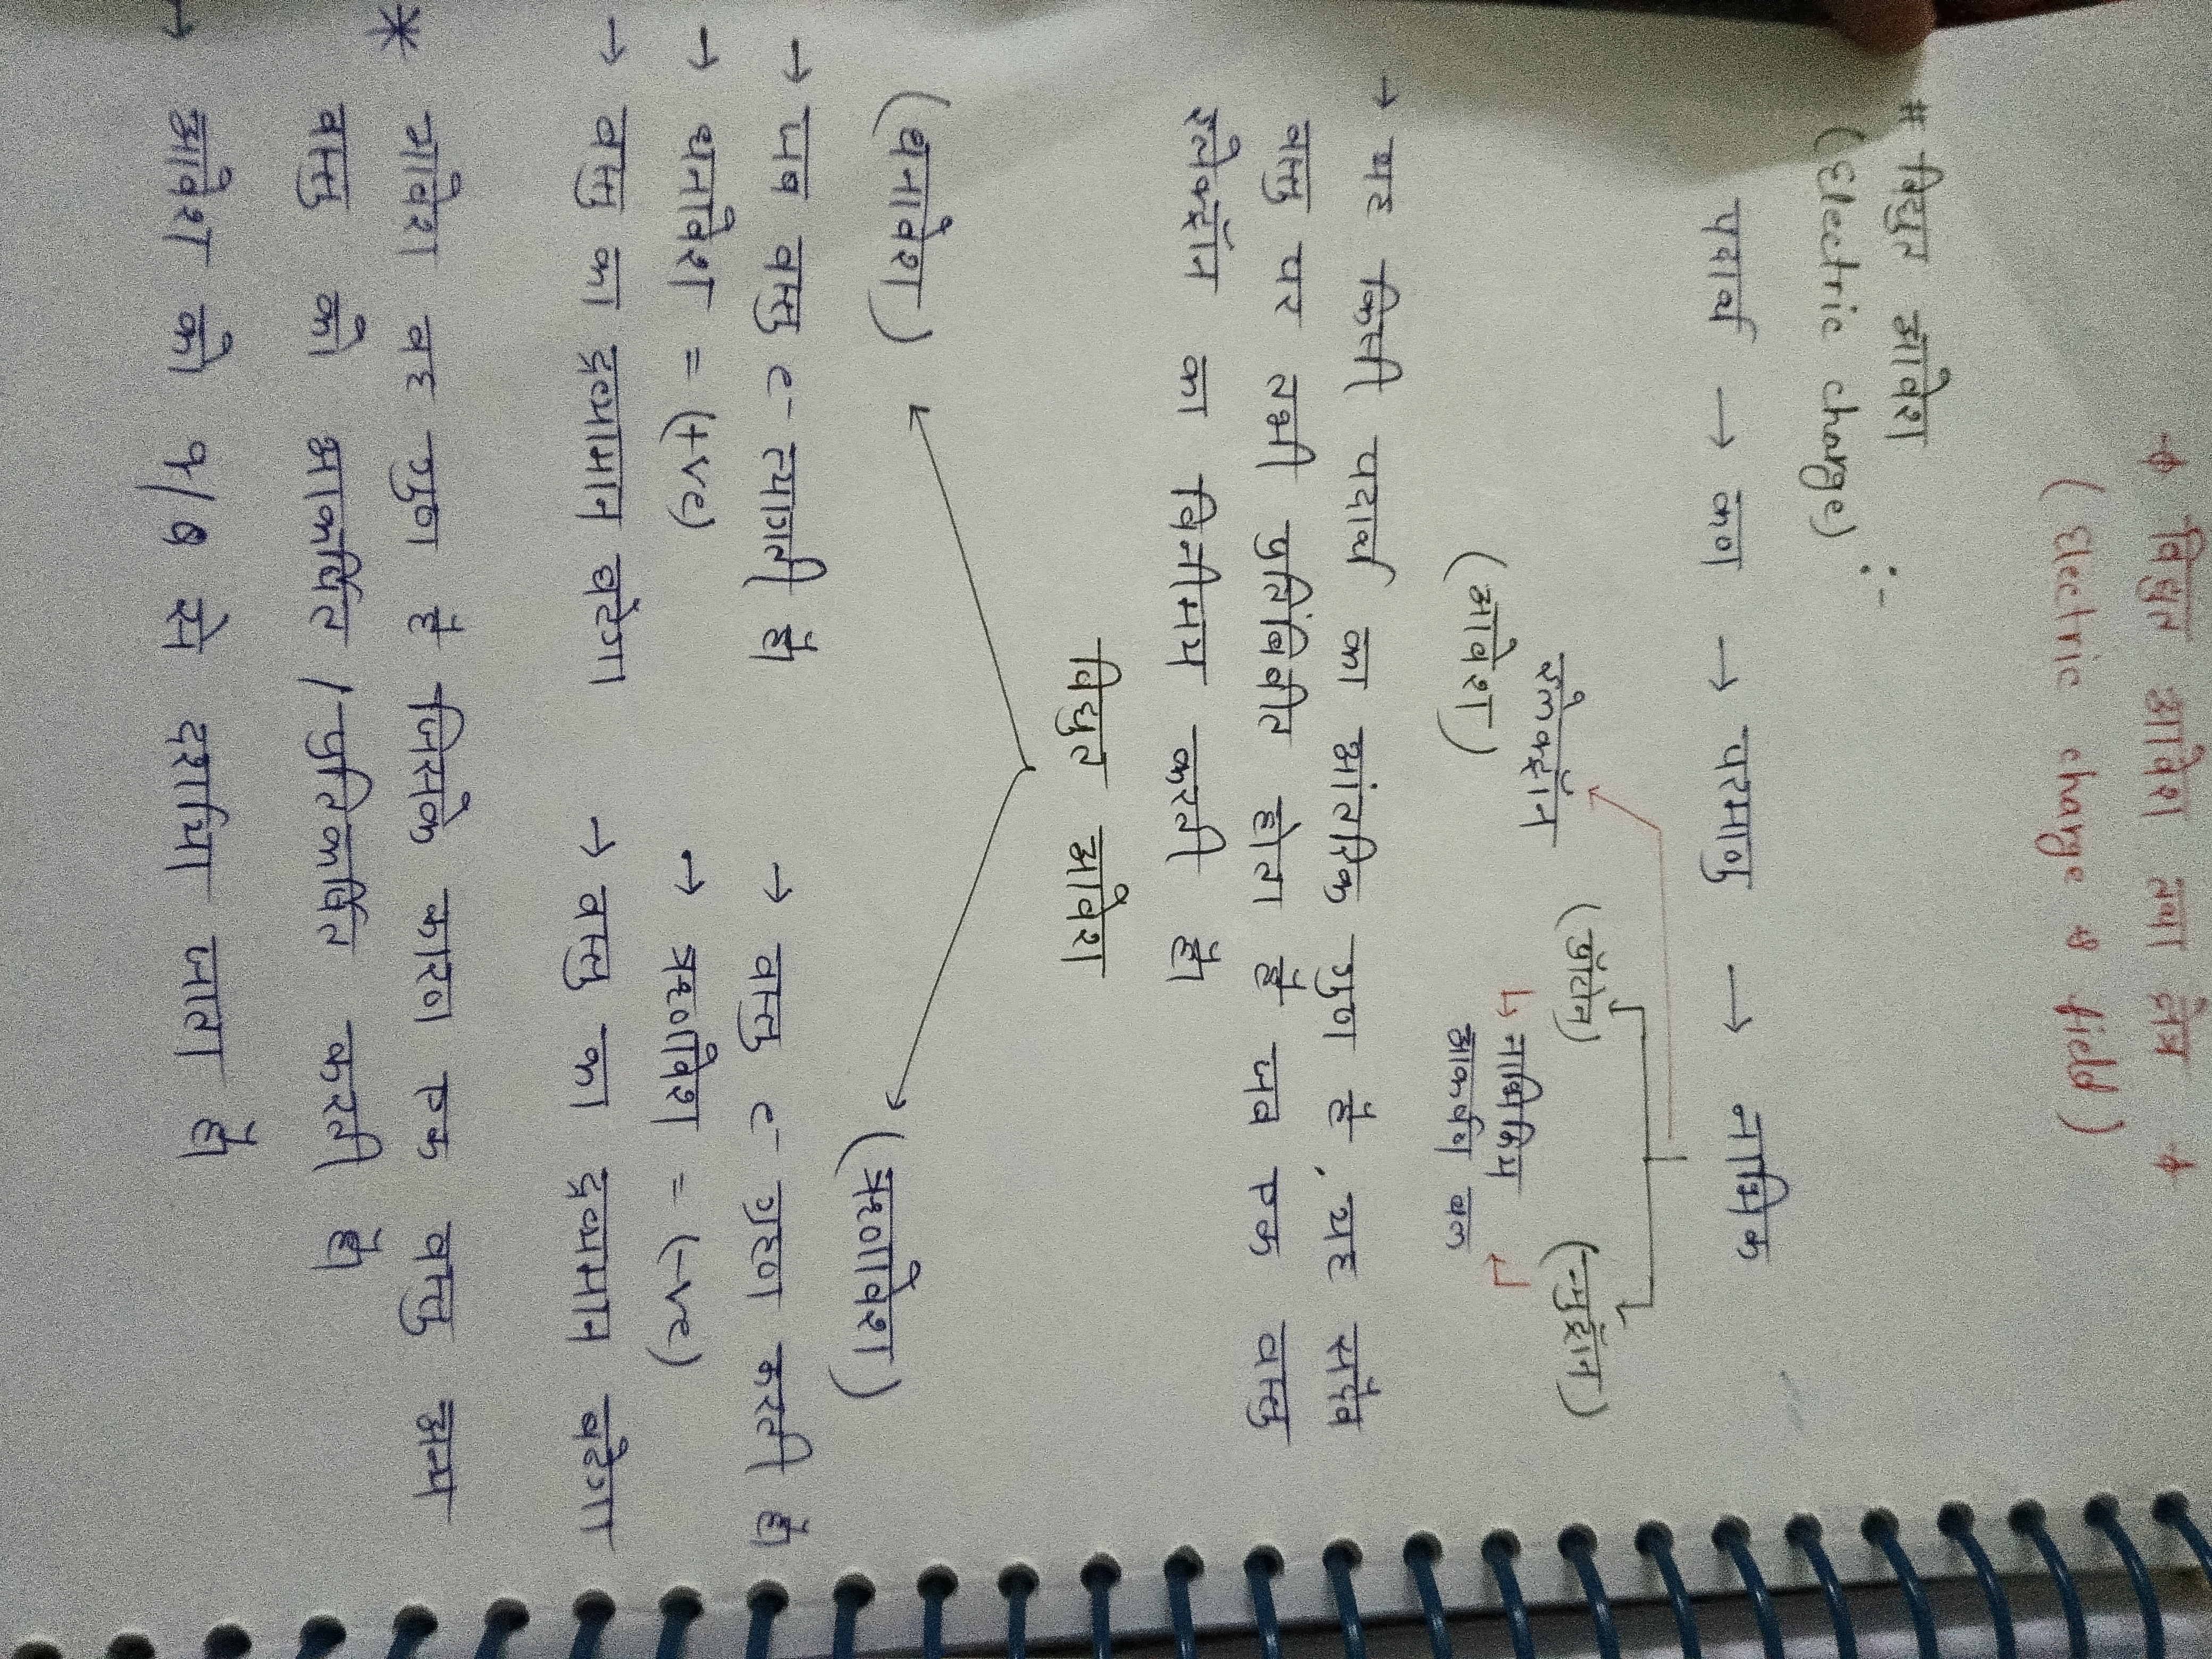 → विद्युत आवेश तथा क्षेत्र ←
( Electric charge & field )
# विद्युत आवेश
(Electric charge) :-
पदार्थ → कण → परमाणु → नाभिक
इलेक्ट्रॉन (प्रोटोन) (न्युट्रॉन)
(आवेश) ↳ नाभिकिय ↲
आकर्षण बल
→ यह किसी पदार्थ का आंतरिक गुण है, यह संपूर्ण
वस्तु पर तभी प्रतिबिंबीत होता है जब एक वस्तु
इलेक्ट्रॉन का विनीमय करती है।
विद्युत आवेश
(धनावेश) (ऋणावेश)
→ जब वस्तु e⁻ त्यागती है। → वस्तु e⁻ ग्रहण करती है।
→ धनावेश = (+ve) → ऋणावेश = (-ve)
→ वस्तु का द्रव्यमान घटेगा → वस्तु का द्रव्यमान बढेगा
* आवेश वह गुण है जिसके कारण एक वस्तु अन्य
वस्तु को आकर्षित / प्रतिकर्षित करती है।
→ आवेश को q/Q से दर्शाया जाता है।